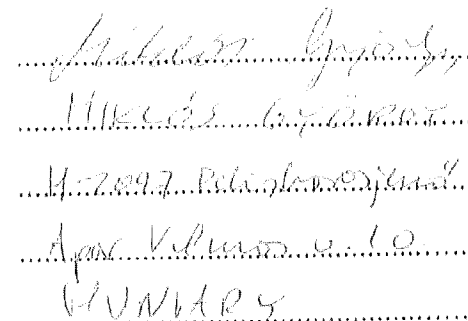 Miklós György
MIKLÓS GYÖRGY
H-2097 Pilisborosjenő
Apor Vilmos u. 10.
HUNGARY